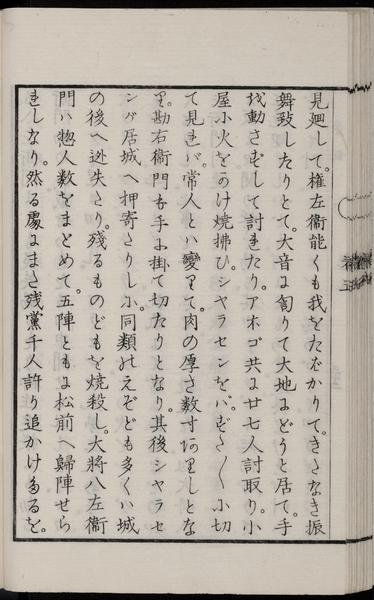 見廻して。権左衞能くも我をたばかりて。きたなき振
舞致したりとて。大音に匐りて大地にどうと居て。手
城動さずして討れたり。アホゴ共に廿七人討取り。小
屋小火をかけ燒拂ひ。シヤラセンをバ。ずた〱小切
て見れバ。常人とハ變りて。肉の厚さ数寸ありしとな
り。勘右衞門も手に掛て切たりとなり。其後シヤラセ
ンが居城へ押寄たりしに。同類のえぞども多くハ城
の後へ迯失たり。殘るものどもを燒殺し。大将八左衞
門ハ惣人数をまとめて。五陣ともに松前へ歸陣せら
れしなり。然る處にまた殘黨千人許り追かけ来るを。